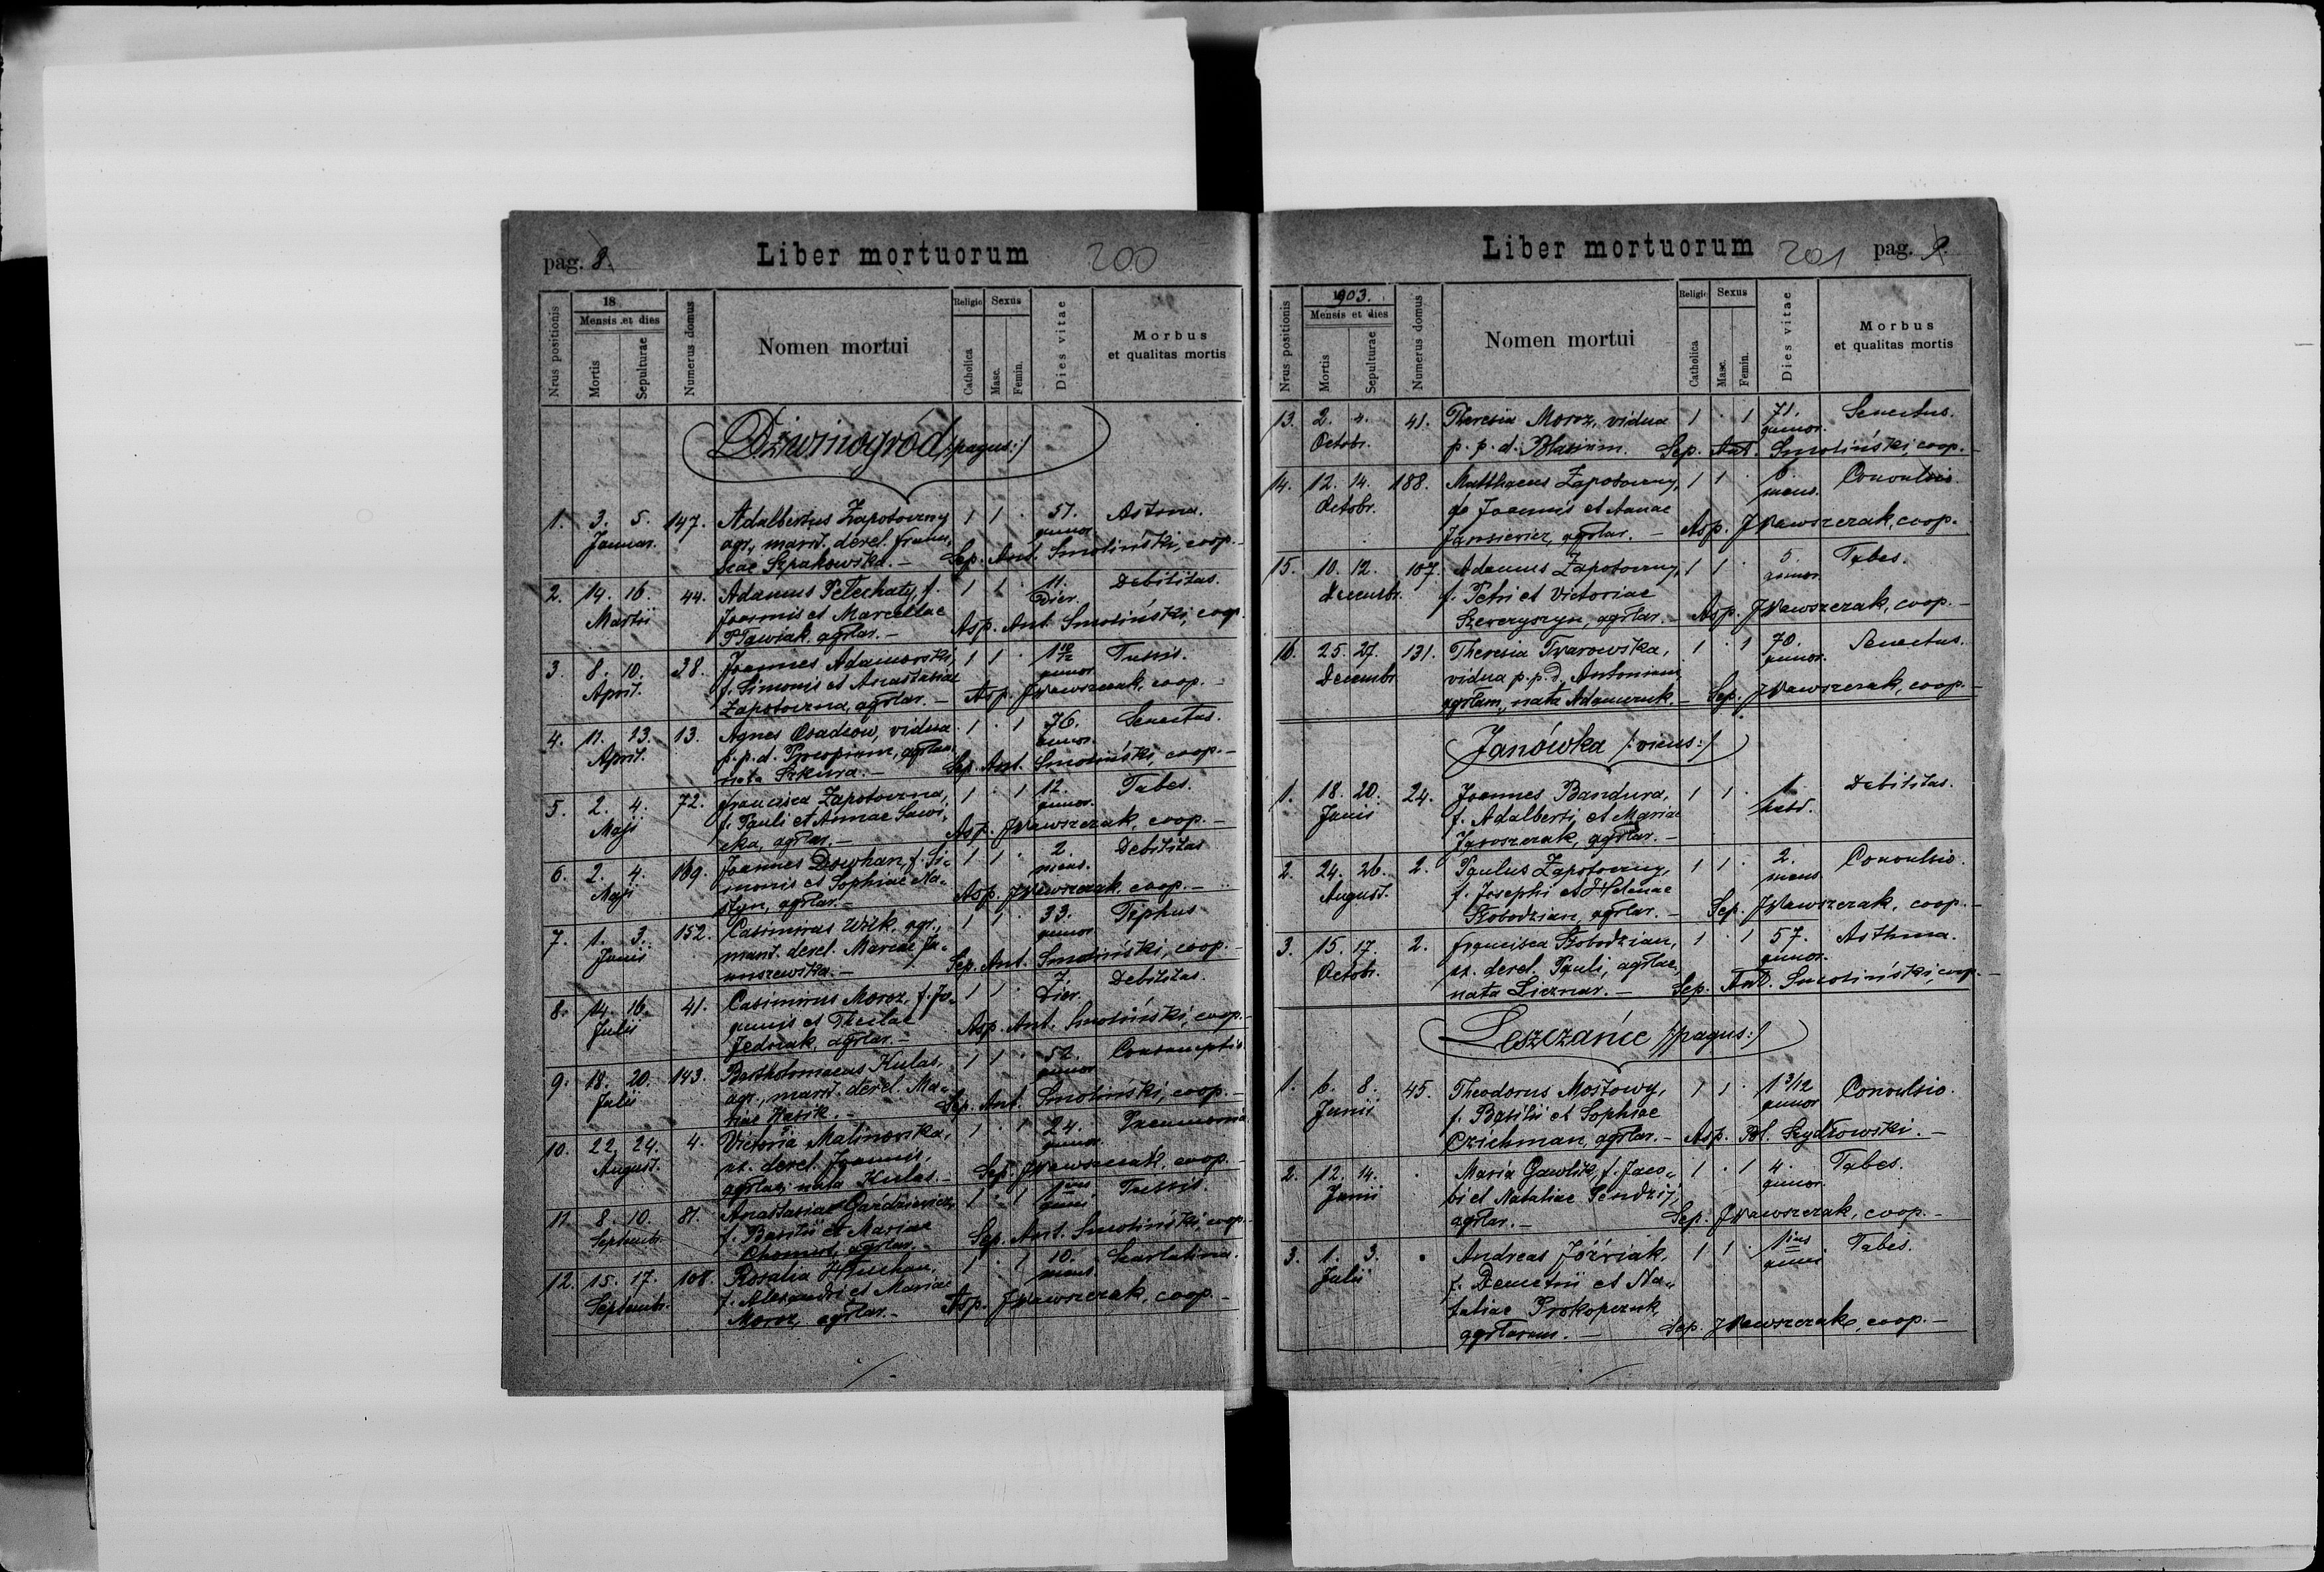 pag. 8.
Liber mortuorum
200
Nrus positionis
18
Mensis et dies
Mortis
Sepulturae
Numerus domus
Nomen mortui
Religio
Catholica
Sexus
Masc.
Femin.
Dies vitae
Morbus
et qualitas mortis
Dźwinogród /:pagus:/
1. 3. 5. 147. Adalbertus Zapotoczny 1 1 · 57.
Januar. agr., marit. derel. Franci- annor.
scae Szpakowska. — Sep. Ant. Smoliński, coop. —
2. 14. 16. 44. Adamus Pelechaty, f. 1 1 · 11. Debilitas.
Martii Joannis et Marcellae Dier.
Pawiak, agrlar. — Asp. Ant. Smoliński, coop.
3. 8. 10. 28. Joannes Adamowski, 1 1 · 1 10/12 Tussis.
April. f. Simonis et Anastasiae annor.
Zapotoczna, agrlar. — Asp. J Wawszczak, coop. —
4. 11. 13. 13. Agnes Osadców, vidua 1 · 1 76. Senectus.
April. p. p. d. agrlam annor.
nata Szkura. — Sep. Ant. Smoliński, coop. —
5. 2. 4. 72. Francisca Zapotoczna, 1 · 1 12. Tabes.
Maji f. Pauli et Annae Sawi- annor.
cka, agrlar. — Asp. J Wawszczak, coop. —
6. 2. 4. 169. Joannes Dowhan, f. Si- 1 1 · 2. Debilitas
Maji monis et Sophiae Na- mens.
styn, agrlar. — Asp. J Wawszczak, coop. —
7. 1. 3. 152. Casimirus Wilk, agr., 1 1 · 33. Tiphus
Junii marit. derel. Mariae Ja- annor.
nuszewska. — Sep. Ant. Smoliński, coop. —
8. 14. 16. 41. Casimirus Moroz, f. Jo- 1 1 · 7. Debilitas.
Julii annis et Theclae Dier.
Jedrzak, agrlar. — Asp. Ant. Smoliński, coop. —
9. 18. 20. 143. Bartholomaeus Kulas, 1 1 · 52. Consumptio
Julii agr., marit. derel. Ma- annor.
riae Hasik. — Sep. Ant. Smoliński, coop. —
10. 22. 24. 4. Victoria Malinowska, 1 · 1 24. Pneumonia
August. ux. derel. Joannis, annor.
agrlae, nata Kulas. — Sep. J Wawszczak, coop. —
11. 8. 10. 81. Anastasiae Gardziewicz, 1 · 1 1 ius Tussis.
Septembr. f. Basilii et Mariae anni
agrlar. — Sep. Ant. Smoliński, coop. —
12. 15. 17. 108. Rosalia Hluchan, 1 · 1 10. Scarlatina.
Septembr. f. Alexandri et Mariae mens.
Moroz, agrlar. — Asp. J Wawszczak, coop. —
Liber mortuorum
201
pag. 9.
Nrus positionis
1903.
Mensis et dies
Mortis
Sepulturae
Numerus domus
Nomen mortui
Religio
Catholica
Sexus
Masc.
Femin.
Dies vitae
Morbus
et qualitas mortis
13. 2. 4. 41. Theresia Moroz, vidua 1 · 1 71. Senectus.
Octobr. p. p. d. Blasium. annor. Sep. Ant. Smoliński, coop. —
14. 12. 14. 188. Matthaeus Zapotoczny, 1 1 · 6. Convulsio.
Octobr. f. Joannis et Annae mens.
Jarosiewicz, agrlar. — Asp. J Wawszczak, coop. —
15. 10. 12. 107. Adamus Zapotoczny, 1 1 · 5. Tabes.
Decembr. f. Petri et Victoriae annor.
Szewczyszyn, agrlar. — Asp. J Wawszczak, coop. —
16. 25. 27. 131. Theresia Twarowska, 1 · 1 70. Senectus.
Decembr. vidua p. p. d. Antonium annor.
agrlam, nata Adamczuk. — Sep. J Wawszczak, coop. —
Janówka /:vicus:/
1. 18. 20. 24. Joannes Bandura, 1 1 · 1. Debilitas.
Junii f. Adalberti et Mariae hebd.
Jaroszczak, agrlar. —
2. 24. 26. 2. Paulus Zapotoczny, 1 1 · 2. Convulsio.
August. f. Josephi et Helenae mens.
Słobodzian, agrlar. — Sep. J Wawszczak, coop. —
3. 15. 17. 2. Francisca Słobodzian, 1 · 1 57. Asthma.
Octobr. ux. derel. Pauli, agrlae, annor.
nata Licznar. — Sep. Ant. Smoliński, coop. —
Leszczańce /:pagus:/
1. 6. 8. 45. Theodorus Mostowy, 1 1 · 1 3/12 Convulsio.
Junii f. Basilii et Sophiae annor
Czichman, agrlar. — Asp. Bl. Szydłowski. —
2. 12. 14. · Maria Gawlik, f. Jaco- 1 · 1 4. Tabes.
Junii bi et Nataliae Pendzij, annor.
agrlar. — Sep. J Wawszczak, coop. —
3. 1. 3. · Andreas Jóźwiak, 1 1 · 1 ius Tabes.
Julii f. Demetrii et Na- anni
taliae Prokopczuk,
agrlarum. — Sep. J Wawszczak, coop. —